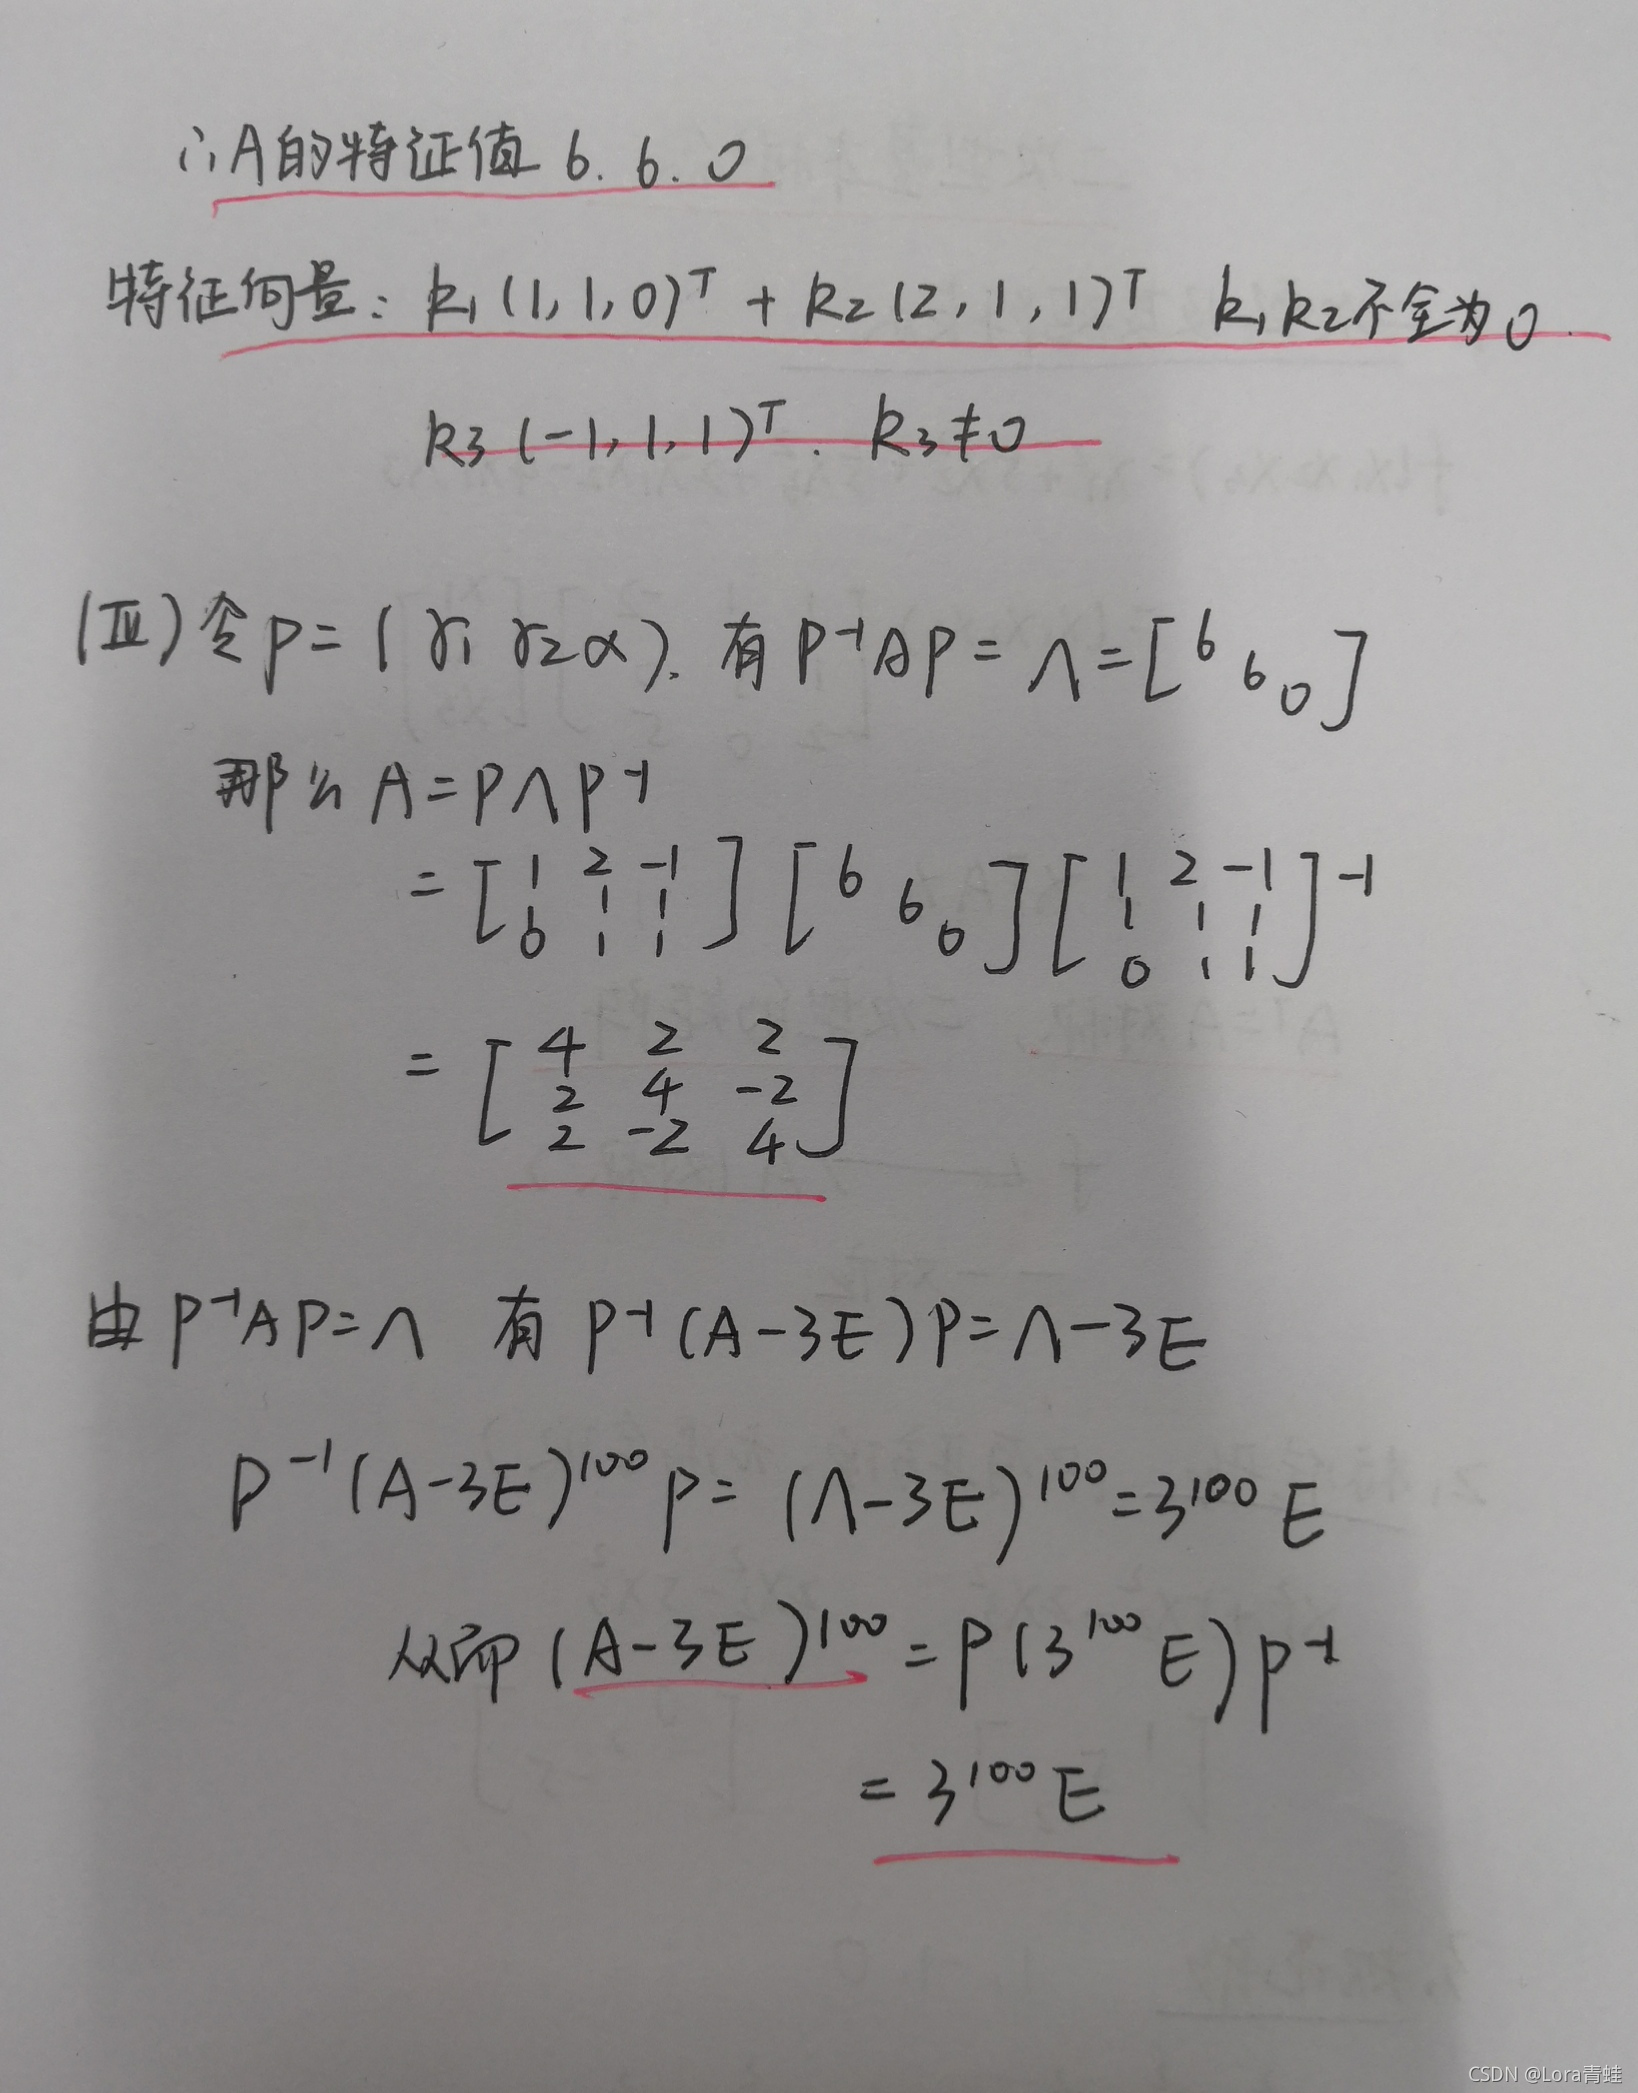 ∴A的特征值 6. 6. 0
特征向量: k₁(1,1,0)ᵀ + k₂(2,1,1)ᵀ k₁k₂不全为0.
k₃(-1,1,1)ᵀ. k₃≠0
(Ⅲ)令P=(γ₁ γ₂ α). 有P⁻¹AP=Λ=[6 6 0]
那么A=PΛP⁻¹
=[1 2 -1; 1 1 1; 0 1 1][6 6 0][1 2 -1; 1 1 1; 0 1 1]⁻¹
=[4 2 2; 2 4 -2; 2 -2 4]
由P⁻¹AP=Λ 有P⁻¹(A-3E)P=Λ-3E
P⁻¹(A-3E)¹⁰⁰P=(Λ-3E)¹⁰⁰=3¹⁰⁰E
从而(A-3E)¹⁰⁰=P(3¹⁰⁰E)P⁻¹
=3¹⁰⁰E
CSDN @Lora青蛙